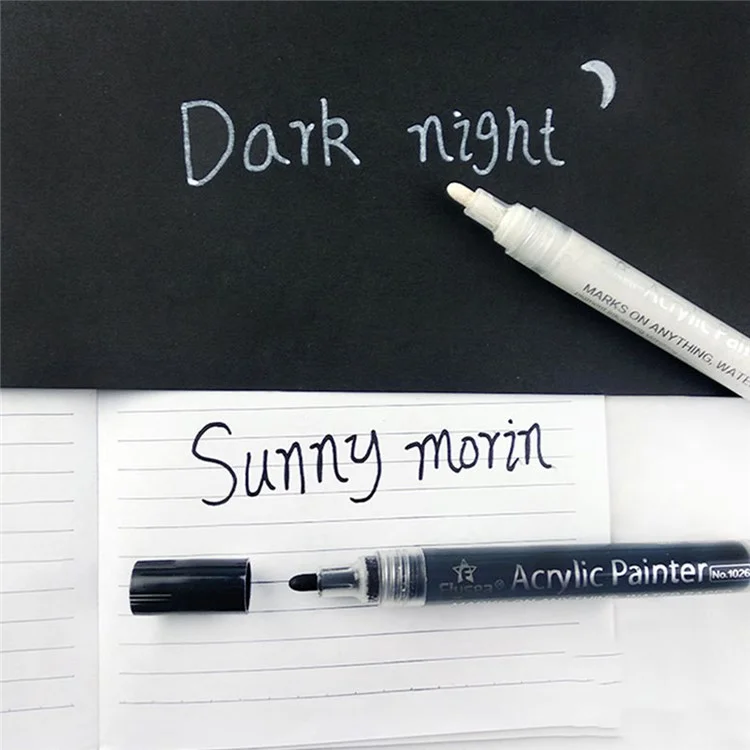 Dark night
MARKS ON ANYTHING, WATE
Sunny morin
Flysea® Acrylic Painter No.1026